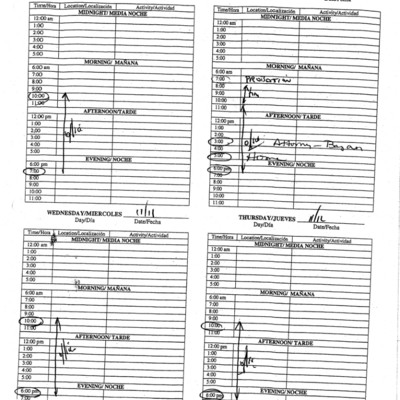 Time/Hora Location/Localización Activity/Actividad
MIDNIGHT/ MEDIA NOCHE
12:00 am
1:00
2:00
3:00
4:00
5:00
MORNING/ MAÑANA
6:00 am
7:00
8:00
9:00
10:00
11:00
AFTERNOON/TARDE
12:00 pm
1:00
2:00
3:00
4:00
5:00
EVENING/ NOCHE
6:00 pm
7:00
8:00
9:00
10:00
11:00
Time/Hora Location/Localización Activity/Actividad
MIDNIGHT/ MEDIA NOCHE
12:00 am
1:00
2:00
3:00
4:00
5:00
MORNING/ MAÑANA
6:00 am
7:00
8:00
9:00
10:00
11:00
AFTERNOON/TARDE
12:00 pm
1:00
2:00
3:00
4:00
5:00
EVENING/ NOCHE
6:00 pm
7:00
8:00
9:00
10:00
11:00
WEDNESDAY/MIERCOLES
Day/Día Date/Fecha
Time/Hora Location/Localización Activity/Actividad
MIDNIGHT/ MEDIA NOCHE
12:00 am
1:00
2:00
3:00
4:00
5:00
MORNING/ MAÑANA
6:00 am
7:00
8:00
9:00
10:00
11:00
AFTERNOON/ TARDE
12:00 pm
1:00
2:00
3:00
4:00
5:00
EVENING/ NOCHE
6:00 pm
7:00
THURSDAY/JUEVES
Day/Día Date/Fecha
Time/Hora Location/Localización Activity/Actividad
MIDNIGHT/ MEDIA NOCHE
12:00 am
1:00
2:00
3:00
4:00
5:00
MORNING/ MAÑANA
6:00 am
7:00
8:00
9:00
10:00
11:00
AFTERNOON/ TARDE
12:00 pm
1:00
2:00
3:00
4:00
5:00
EVENING/ NOCHE
6:00 pm
7:00